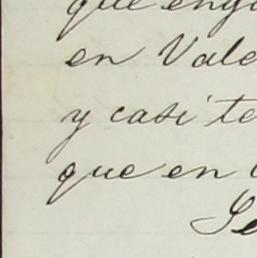 que
en Vale
y casi te
que en
Se